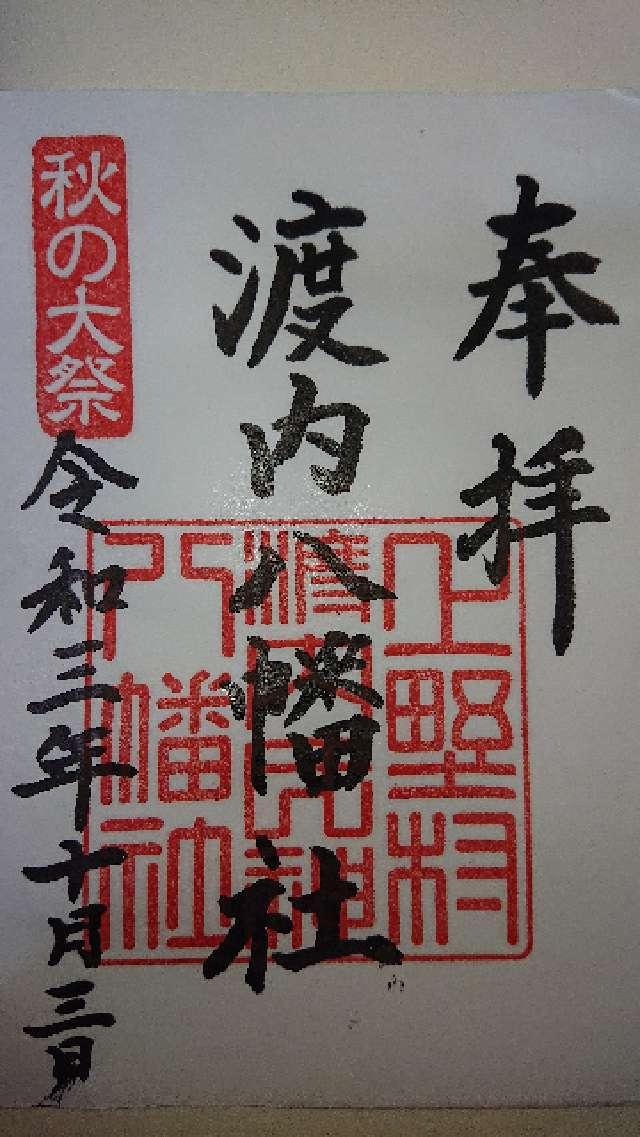 奉拝
渡内八幡社
秋の大祭
令和三年十月三日
上野村
八幡社